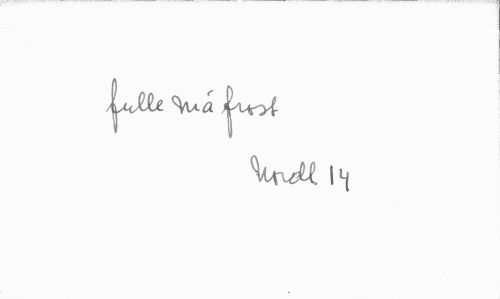 fulle må frost
Nordl. 14